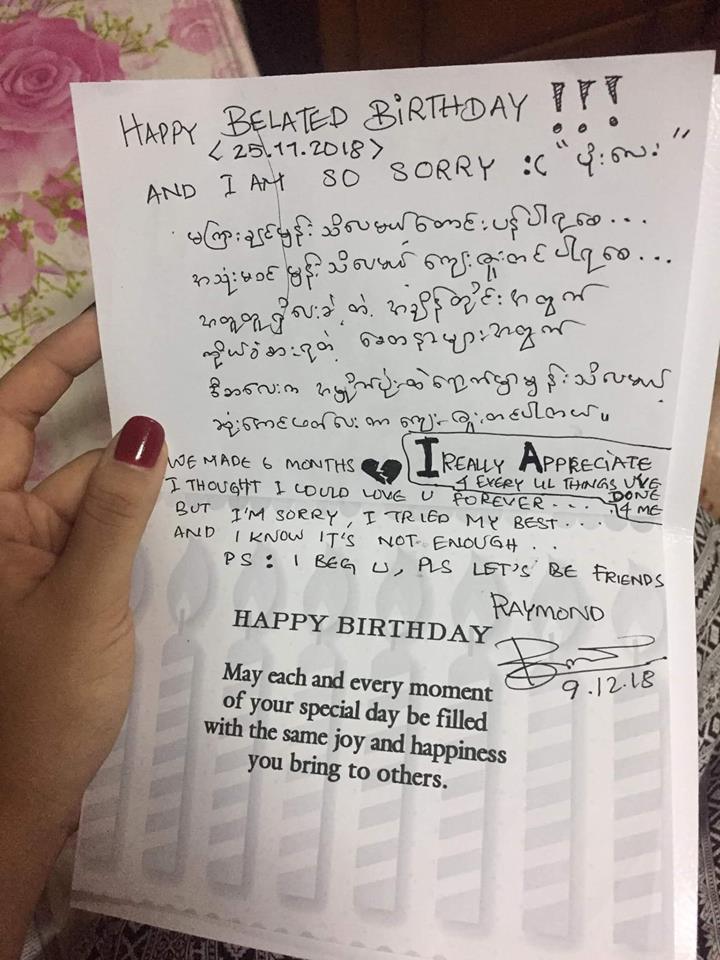 HAPPY BELATED BIRTHDAY !!!
<25.11.2018>
AND I AM SO SORRY :( "ပိုးလေး"
မကြားချင်မှန်း သိပေမယ့် တောင်းပန်ပါရစေ...
မသုံးမဝင်မှန်း သိပေမယ့် ကျေးဇူးတင်ပါရစေ...
အတူတူရှိပေးခဲ့တဲ့ အချိန်တိုင်းအတွက်
ကိုယ်ခံစားရတဲ့ စေတနာများအတွက်
ကျေးဇူးတင်ပါတယ်။
WE MADE 6 MONTHS 💔
I REALLY APPRECIATE
4 EVERY LIL THINGS U'VE
DONE
14 ME
I THOUGHT I COULD LOVE U FOREVER....
BUT I'M SORRY, I TRIED MY BEST...
AND I KNOW IT'S NOT ENOUGH..
PS: I BEG U, PLS LET'S BE FRIENDS
RAYMOND
9.12.18
HAPPY BIRTHDAY
May each and every moment
of your special day be filled
with the same joy and happiness
you bring to others.